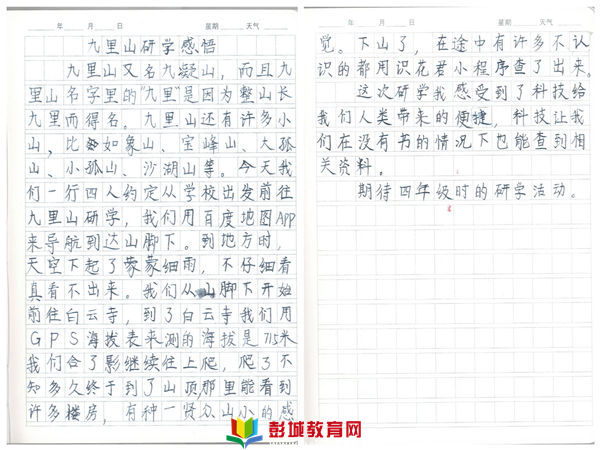 年 月 日 星期 天气
九里山研学感悟
九里山又名九凝山，而且九
里山名字里的“九里”是因为整山长
九里而得名。九里山还有许多小
山，比如象山、宝峰山、大孤
山、小孤山、沙湖山等。今天我
们一行四人约定从学校出发前往
九里山研学，我们用百度地图APP
来导航到达山脚下。到地方时，
天空下起了蒙蒙细雨，不仔细看
真看不出来。我们从山脚下开始
前往白云寺，到了白云寺我们用
GPS海拔表来测的海拔是715米
我们合了影继续往上爬，爬了不
知多久终于到了山顶，那里能看到
许多楼房，有种一览众山小的感
年 月 日 星期 天气
觉。下山了，在途中有许多不认
识的都用识花君小程序查了出来。
这次研学我感受到了科技给
我们人类带来的便捷，科技让我
们在没有书的情况下也能查到相
关资料。
期待四年级时的研学活动。
彭城教育网